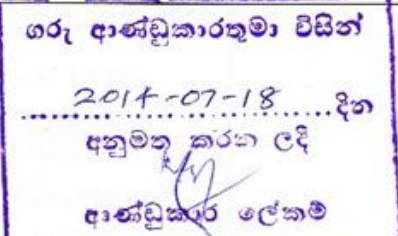 ගරු ආණ්ඩුකාරතුමා විසින්
2014-07-18 දින
අනුමත කරන ලදි
ආණ්ඩුකාර ලේකම්